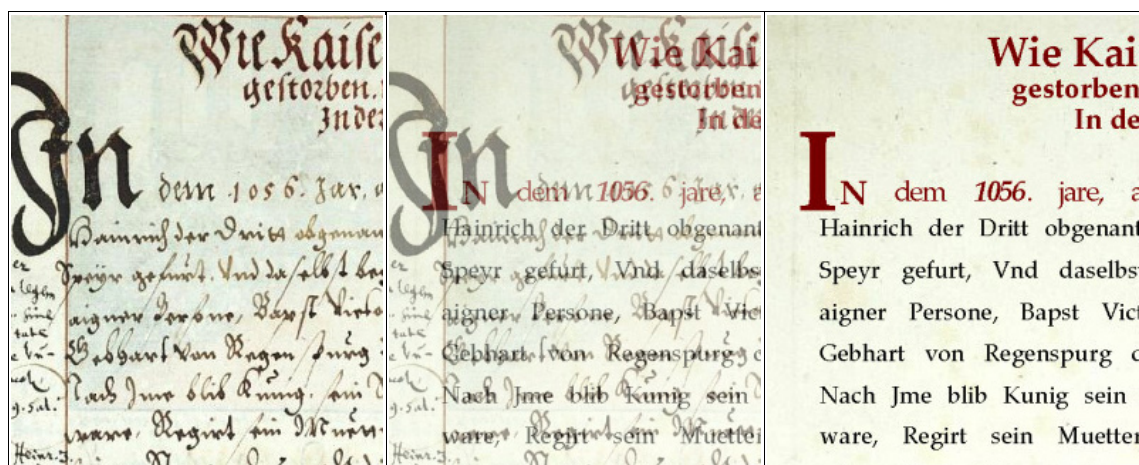 Wie Kaise
gestorben.
In der
In dem 1056. Jar, a
Hainrich der Dritt obgenan
Speyr gefurt. Vnd daselbst be
aigner Persone, Bapst Victo
Gebhart Von Regenspurg
Nach Jme blib Kunig, sein
ware, Regirt sein Muett
Wie Kai
gestorben
In de
IN dem 1056. jare, a
Hainrich der Dritt obgenant
Speyr gefurt, Vnd daselbs
aigner Persone, Bapst Vict
Gebhart von Regenspurg
Nach Jme blib Kunig sein
ware, Regirt sein Muetter
Wie Kai
gestorben
In de
IN dem 1056. jare, a
Hainrich der Dritt obgenant
Speyr gefurt, Vnd daselbst
aigner Persone, Bapst Vict
Gebhart von Regenspurg d
Nach Jme blib Kunig sein
ware, Regirt sein Muetter